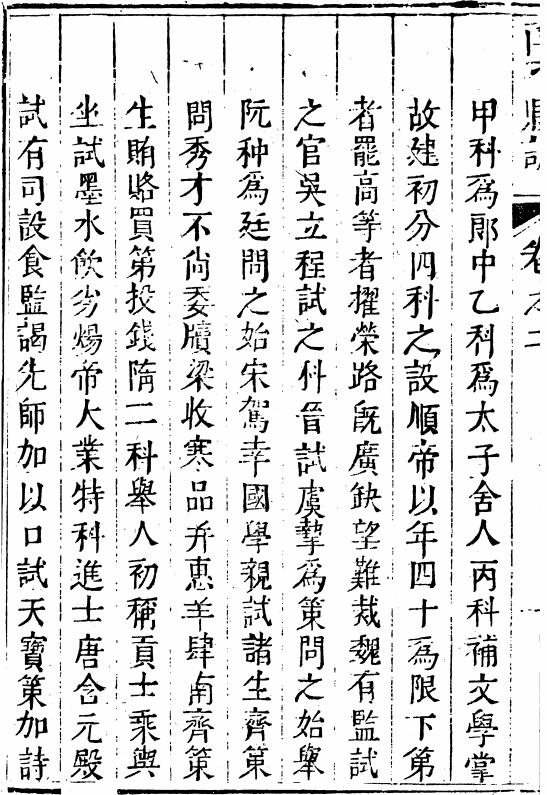 甲科爲郎中乙科爲太子舍人丙科補文學掌
故建初分四科之設順帝以年四十爲限下第
者罷高等者擢榮路旣廣缺望難裁魏有監試
之官吳立程試之科晉試虞摯爲策問之始舉
阮种爲廷問之始宋駕幸國學親試諸生齊策
問秀才不尙委牘梁收寒品并惠羊肆南齊策
生賄賂買第投錢隋二科舉人初稱貢士乘輿
坐試墨水飲劣煬帝大業特科進士唐含元殿
試有司設食監謁先師加以口試天寶策加詩
卷之二